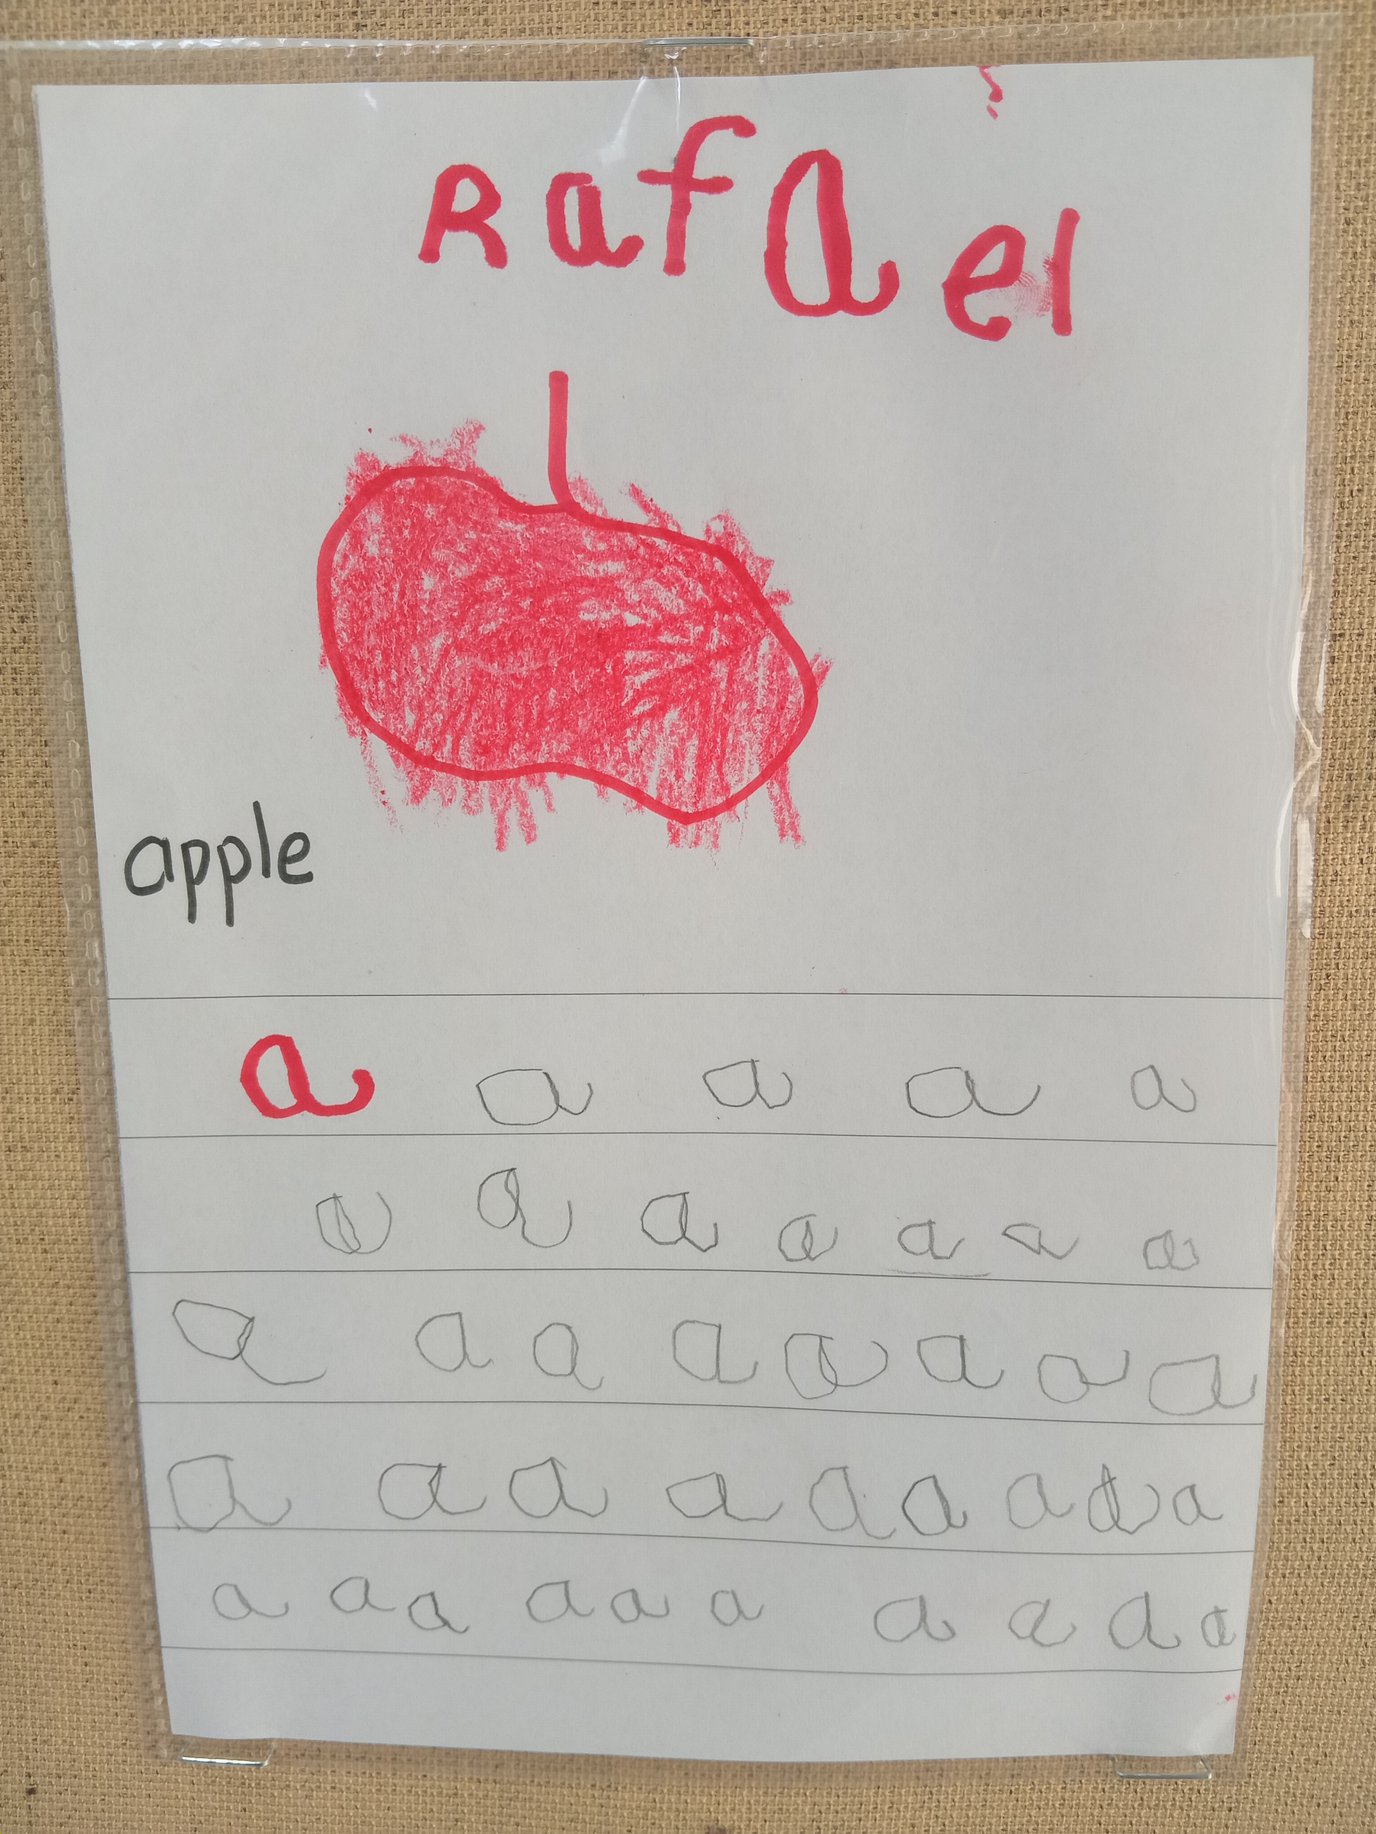 Rafael
apple
a a a a a
a a a a a a a
a a a a a a a a
a a a a a a a a a
a a a a a a a a a a